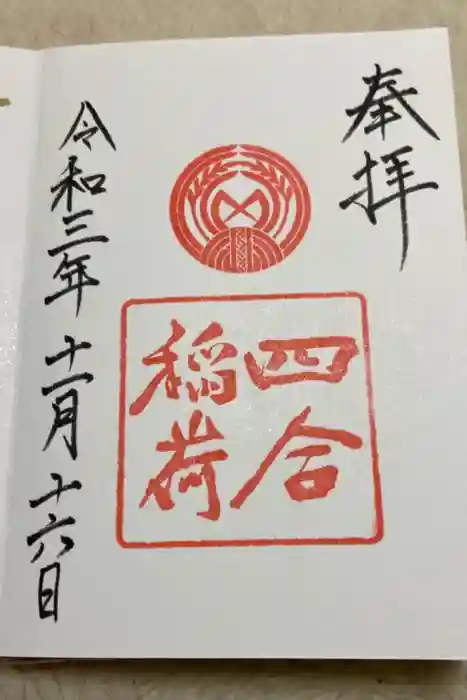 奉拝
四合
稲荷
令和三年十一月十六日